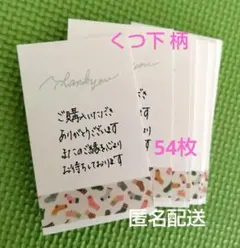 くつ下 柄
thankyou
ご購入いただき
ありがとうございます
またのご縁を心より
お待ちしております
54枚
匿名配送